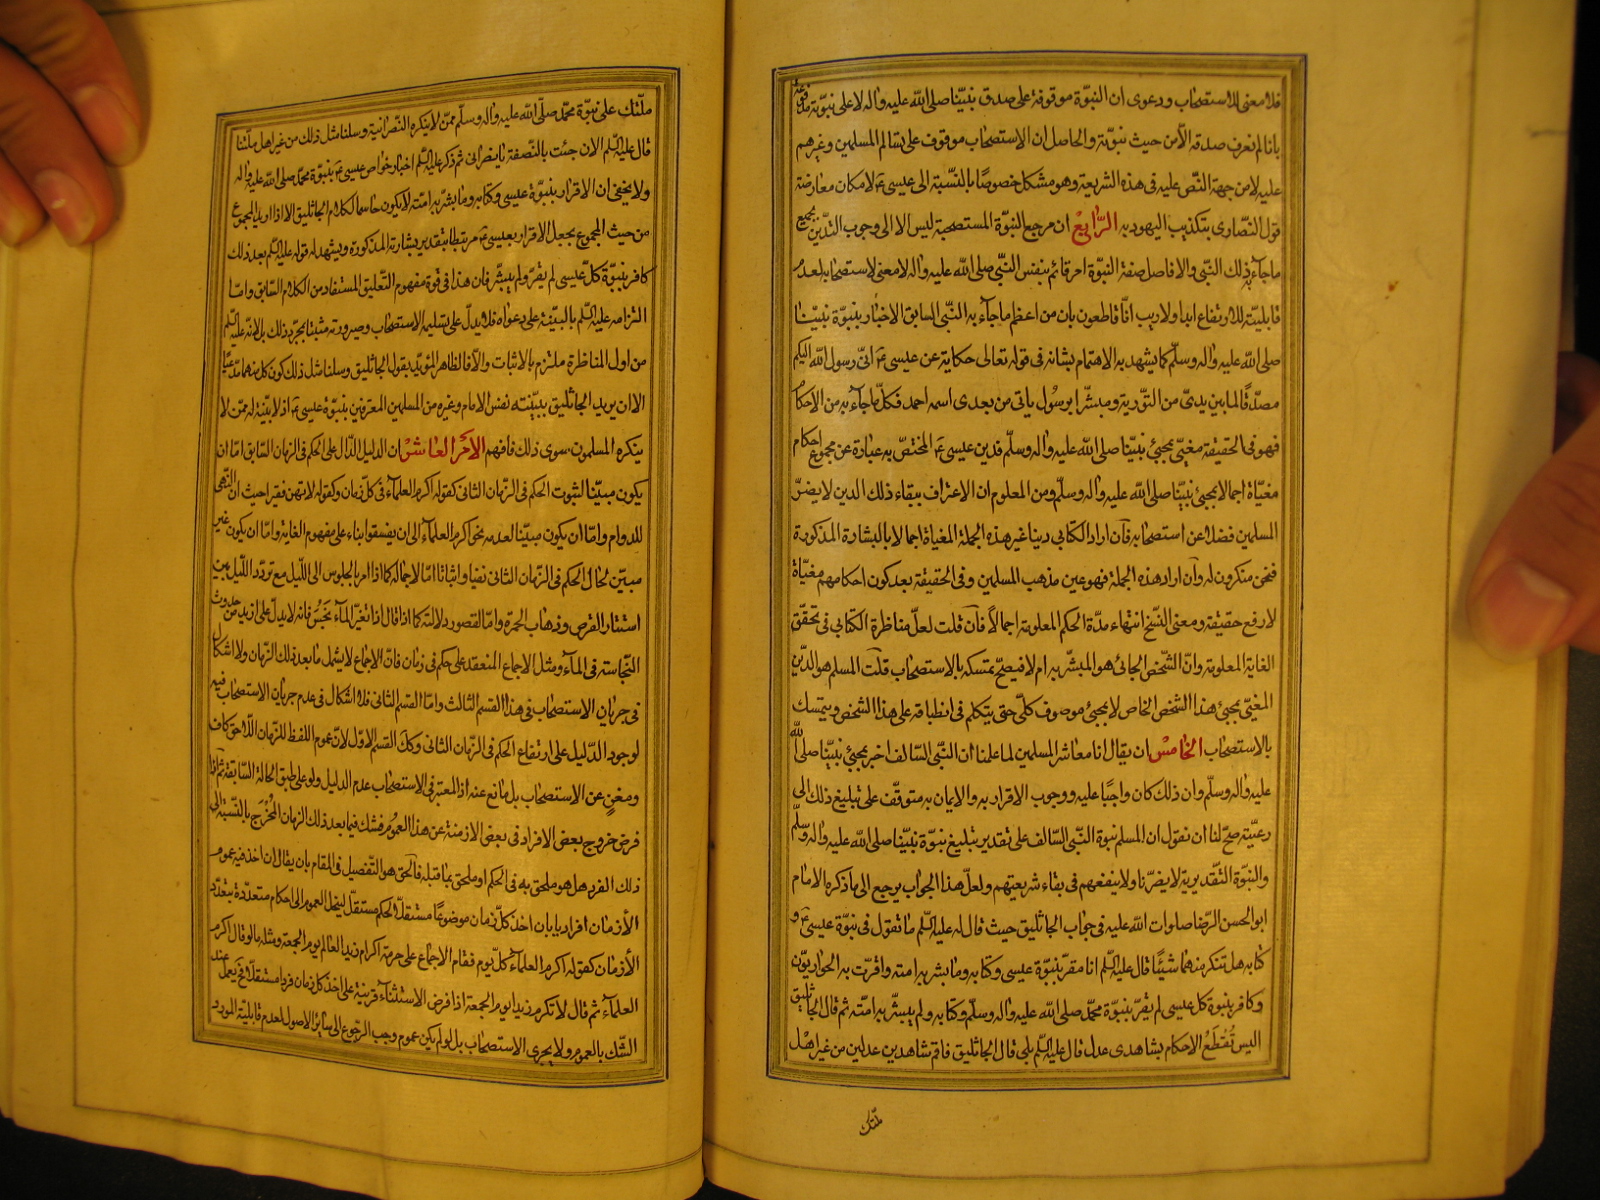 فلا معنى للاستصحاب ودعوى ان النبوّة موقوفة على صدق نبيّنا صلى الله عليه واله لا على نبوّته مدفوعة
بانا لم نعرف صدقه الّا من حيث نبوّته والحاصل ان الاستصحاب موقوف على تسالم المسلمين وغيرهم
عليه لا من جهة النّص عليه فى هذه الشريعة وهو مشكل خصوصًا بالنّسبة الى عيسى ع لامكان معارضة
قول النّصارى بتكذيب اليهود به الرّابع ان مرجع النبوّة المستصحبة ليس الا الى وجوب التديّن بجميع
ما جآء به ذلك النّبي والا فاصل صفة النبوّة امر قائم بنفس النّبي صلى الله عليه واله لا معنى لاستصحابه لعدم
قابليّته للارتفاع ابدا ولا ريب انّا قاطعون بان من اعظم ما جآء به النّبي السابق الاخبار بنبوّة نبيّنا
صلى الله عليه واله وسلّم كما يشهد به الاهتمام بشانه فى قوله تعالى حكاية عن عيسى ع انّي رسول الله اليكم
مصدّقًا لما بين يدىّ من التّورية ومبشّرا برسُول ياتى من بعدى اسمه احمد فكلّ ما جآء به من الاحكام
فهو فى الحقيقة مغيّى بمجيئ نبيّنا صلى الله عليه واله وسلّم فدين عيسى ع المختصّ به عبارة عن مجموع احكام
مغيّاة اجمالا بمجيئ نبيّنا صلى الله عليه واله وسلّم ومن المعلوم ان الاعتراف ببقاء ذلك الدين لا يضرّ
المسلمين فضلا عن استصحابه فان اراد الكتابى دينا غير هذه الجملة المغياة اجمالا بالبشارة المذكورة
فنحن منكرون له وان اراد هذه الجملة فهو عين مذهب المسلمين وفى الحقيقة بعد كون احكامهم مغيّاة
لا رفع حقيقة ومعنى النّسخ انتهاء مدّة الحكم المعلومة اجمالًا فان قلت لعلّ مناظرة الكتابى فى تحقّق
الغاية المعلومة وانّ الشّخص الجائى هو المبشّر به ام لا فيصحّ تمسكه بالاستصحاب قلت المسلم هو الدّين
المغيّى بمجيئ هذا الشخص الخاص لا بمجيئ موصوف كلّى حتى يتكلم فى انطباقه على هذا الشخص ويتمسك
بالاستصحاب الخامس ان يقال انا معاشر المسلمين لما علمنا ان النّبي السّالف اخبر بمجيئ نبيّنا صلى الله
عليه واله وسلّم وان ذلك كان واجبًا عليه ووجوب الاقرار به والايمان به متوقّف على تبليغ ذلك الى
رعيّته صحّ لنا ان نقول ان المسلم نبوة النّبي السّالف على تقدير تبليغ نبوّة نبيّنا صلى الله عليه واله وسلّم
والنبوّة التّقديرية لا يضرّنا ولا ينفعهم فى بقاء شريعتهم ولعلّ هذا الجواب يرجع الى ما ذكره الامام
ابو الحسن الرّضا صلوات الله عليه فى جواب الجاثليق حيث قال له عليه السّلم ما تقول فى نبوّة عيسى ع و
كتابه هل تنكر منهما شيئًا قال عليه السّلم انا مقرّ بنبوّة عيسى وكتابه وما بشر به امته واقرّت به الحواريّون
وكافر بنبوة كل عيسى لم يقرّ بنبوّة محمّد صلى الله عليه واله وسلّم وكتابه ولم يبشّر به امّته ثم قال الجاثليق
اليس تُقطَعُ الاحكام بشاهدى عدل قال عليه السّلم بلى قال الجاثليق فاقم شاهدين عدلين من غير اهل
ملّتك
ملّتك على نبوّة محمّد صلّى الله عليه واله وسلّم ممّن لا ينكره النّصرانية وسلنا مثل ذلك من غير اهل ملّتنا
قال عليه السّلم الان جئت بالنّصفة يا نصرانى ثم ذكر عليه السّلم اخبار خواص عيسى ع بنبوّة محمّد صلى الله عليه واله
ولا يخفى ان الاقرار بنبوّة عيسى وكتابه وما بشّر به امته لا يكون حاسما لكلام الجاثليق الا اذا اريد المجموع
من حيث المجموع بجعل الاقرار بعيسى ع مرتبطا بتقدير بشارته المذكورة ويشهد له قوله عليه السّلم بعد ذلك
كافر بنبوّة كلّ عيسى لم يقرّ ولم يبشّر فان هذا فى قوة مفهوم التّعليق المستفاد من الكلام السّابق وامّا
التزامه عليه السّلم بالبيّنة على دعواه فلا يدلّ على تسليمه الاستصحاب وصيرورته مثبتا بمجرّد ذلك بل لانه عليه السّلم
من اول المناظرة ملتزم بالاثبات والّا فالظاهر المؤيّد بقول الجاثليق وسلنا مثل ذلك كون كل منهما مدّعيًا
الا ان يريد الجاثليق ببيّنته نفس الامام وغيره من المسلمين المعترفين بنبوّة عيسى ع اذ لا بيّنة له ممّن لا
ينكره المسلمون سوى ذلك فافهم الأمر العاشر ان الدليل الدّال على الحكم فى الزمان السّابق امّا ان
يكون مبيّنا لثبوت الحكم فى الزّمان الثانى كقوله اكرم العلمآء فى كلّ زمان وكقوله لا تهن فقيرا حيث ان النّهى
للدوام وامّا ان يكون مبيّنا لعدمه نحو اكرم العلمآء الى ان يفسقوا بناء على مفهوم الغاية وامّا ان يكون غير
مبيّن لحال الحكم فى الزّمان الثانى نفيا واثباتا امّا لاجماله كما اذا امر بالجلوس الى اللّيل مع تردّد اللّيل بين
استتار القرص وذهاب الحمرة وامّا لقصور دلالته كما اذا قال اذا تغيّر المآء نَجَسُ فانه لا يدلّ على ازيد من حدوث
النّجاسة فى المآء ومثل الاجماع المنعقد على حكم فى زمان فانّ الاجماع لا يشمل ما بعد ذلك الزّمان ولا اشكال
فى جريان الاستصحاب فى هذا القسم الثالث وامّا القسم الثانى فلا اشكال فى عدم جريان الاستصحاب فيه
لوجود الدّليل على ارتفاع الحكم فى الزّمان الثانى وكك القسم الاوّل لانّ عموم اللفظ للزّمان اللّاحق كاف
ومغنٍ عن الاستصحاب بل مانع عنه اذ المعتبر فى الاستصحاب عدم الدليل ولو على طبق الحالة السّابقة ثم اذا
فرض خروج بعض الافراد فى بعض الازمنة عن هذا العموم فشك فيما بعد ذلك الزمان المُخْرَج بالنّسبة الى
ذلك الفرد هل هو ملحق به فى الحكم او ملحق بما قبله فالحق هو التّفصيل فى المقام بان يقال ان اخذ فيه عموم
الأزمان افراديا بان اخذ كلّ زمان موضوعًا مستقلّا لحكم مستقلّ لينحل العموم الى احكام متعدّدة بتعدّد
الأزمان كقوله اكرم العلمآء كلّ يوم فقام الاجماع على حرمة اكرام زيد العالم يوم الجمعة ومثله ما لو قال اكرم
العلمآء ثم قال لا تكرم زيدا يوم الجمعة اذا فرض الاستثنآء قرينة على اخذ كل زمان فردا مستقلّا فح يعمل عند
الشّك بالعموم ولا يجرى الاستصحاب بل لو لم يكن عموم وجب الرّجوع الى سائر الاصول لعدم قابلية المورد